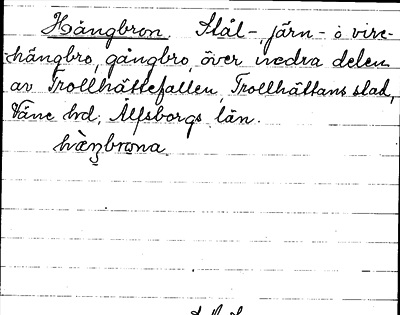 Hängbron. Stål-, järn- o vire-
hängbro, gångbro, över nedra delen
av Trollhättefallen, Trollhättans stad,
Väne hd, Älfsborgs län.
hàŋbrωna.